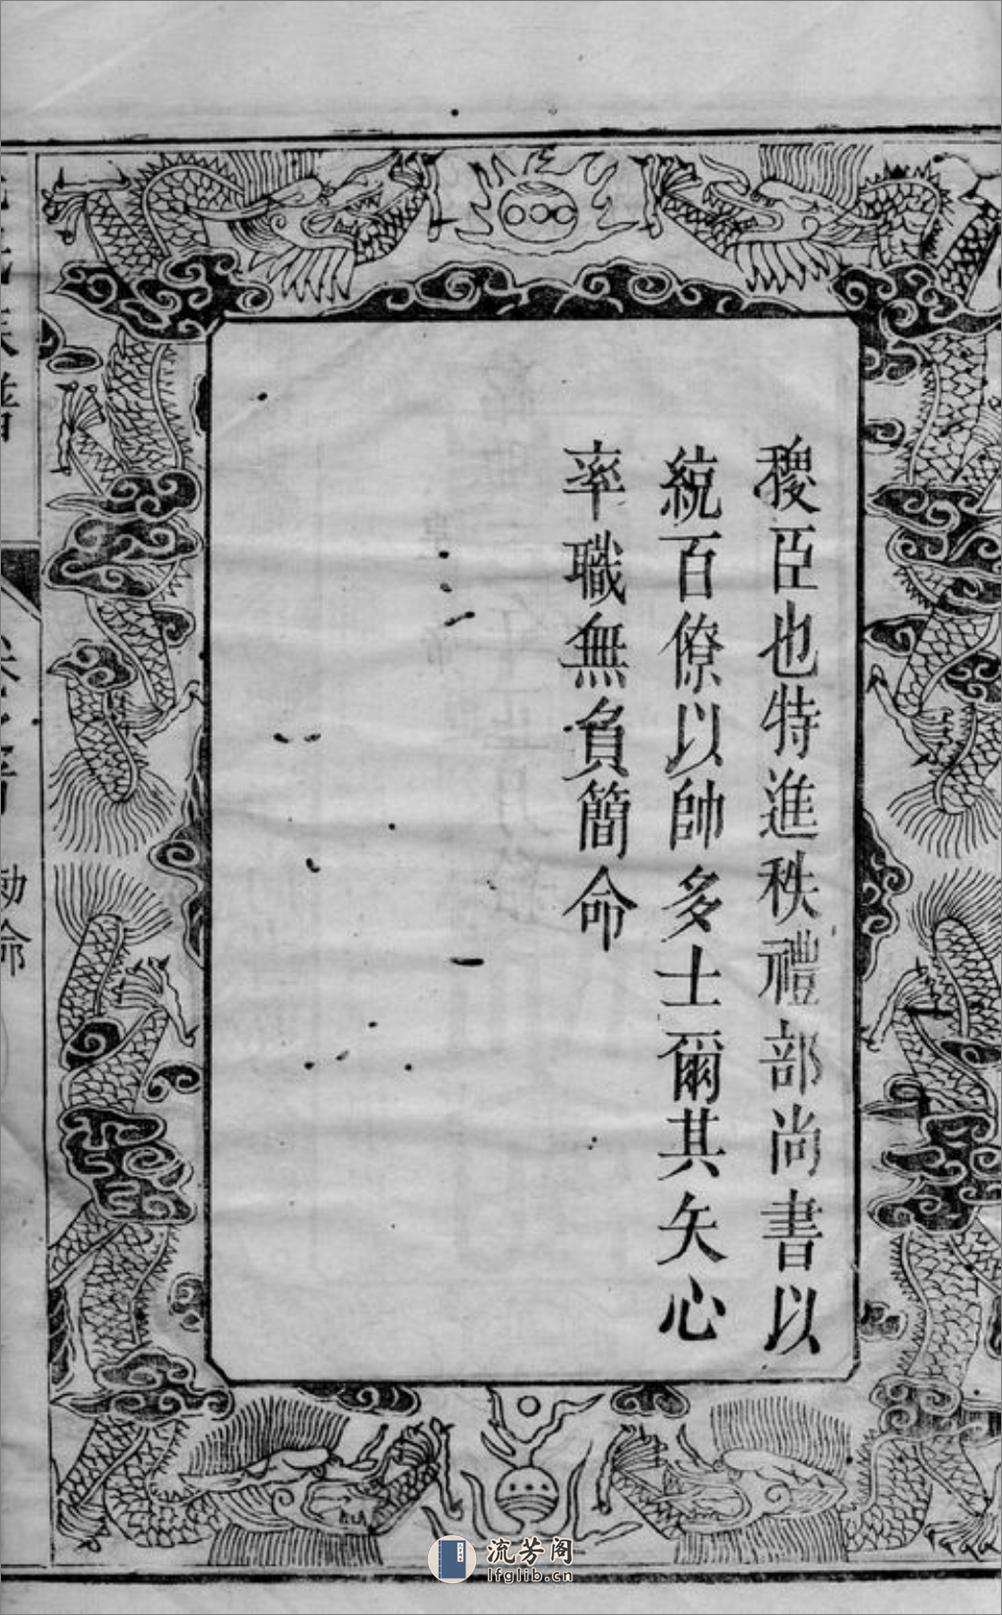 稷臣也特進秩禮部尚書以
統百僚以帥多士爾其矢心
率職無負簡命
勅命
流芳阁
lfglib.cn